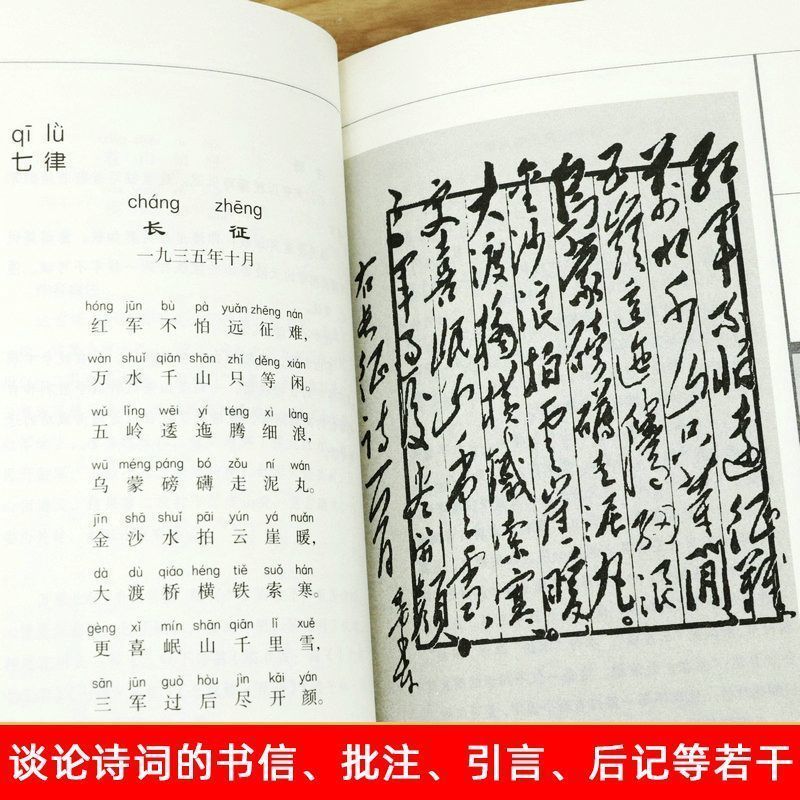 qī lǜ
七律
cháng zhēng
长征
一九三五年十月
hóng jūn bù pà yuǎn zhēng nán
红军不怕远征难,
wàn shuǐ qiān shān zhǐ děng xián
万水千山只等闲。
wǔ lǐng wēi yí téng xì làng
五岭逶迤腾细浪,
wū méng páng bó zǒu ní wán
乌蒙磅礴走泥丸。
jīn shā shuǐ pāi yún yá nuǎn
金沙水拍云崖暖,
dà dù qiáo héng tiě suǒ hán
大渡桥横铁索寒。
gèng xǐ mín shān qiān lǐ xuě
更喜岷山千里雪,
sān jūn guò hòu jìn kāi yán
三军过后尽开颜。
紅軍不怕遠征難
萬水千山只等閒
五嶺逶迤騰細浪
烏蒙磅礴走泥丸。
金沙浪拍雲崖暖
大渡橋橫鐵索寒
更喜岷山千里雪
三軍過後盡開顏
右長征詩一首
谈论诗词的书信、批注、引言、后记等若干